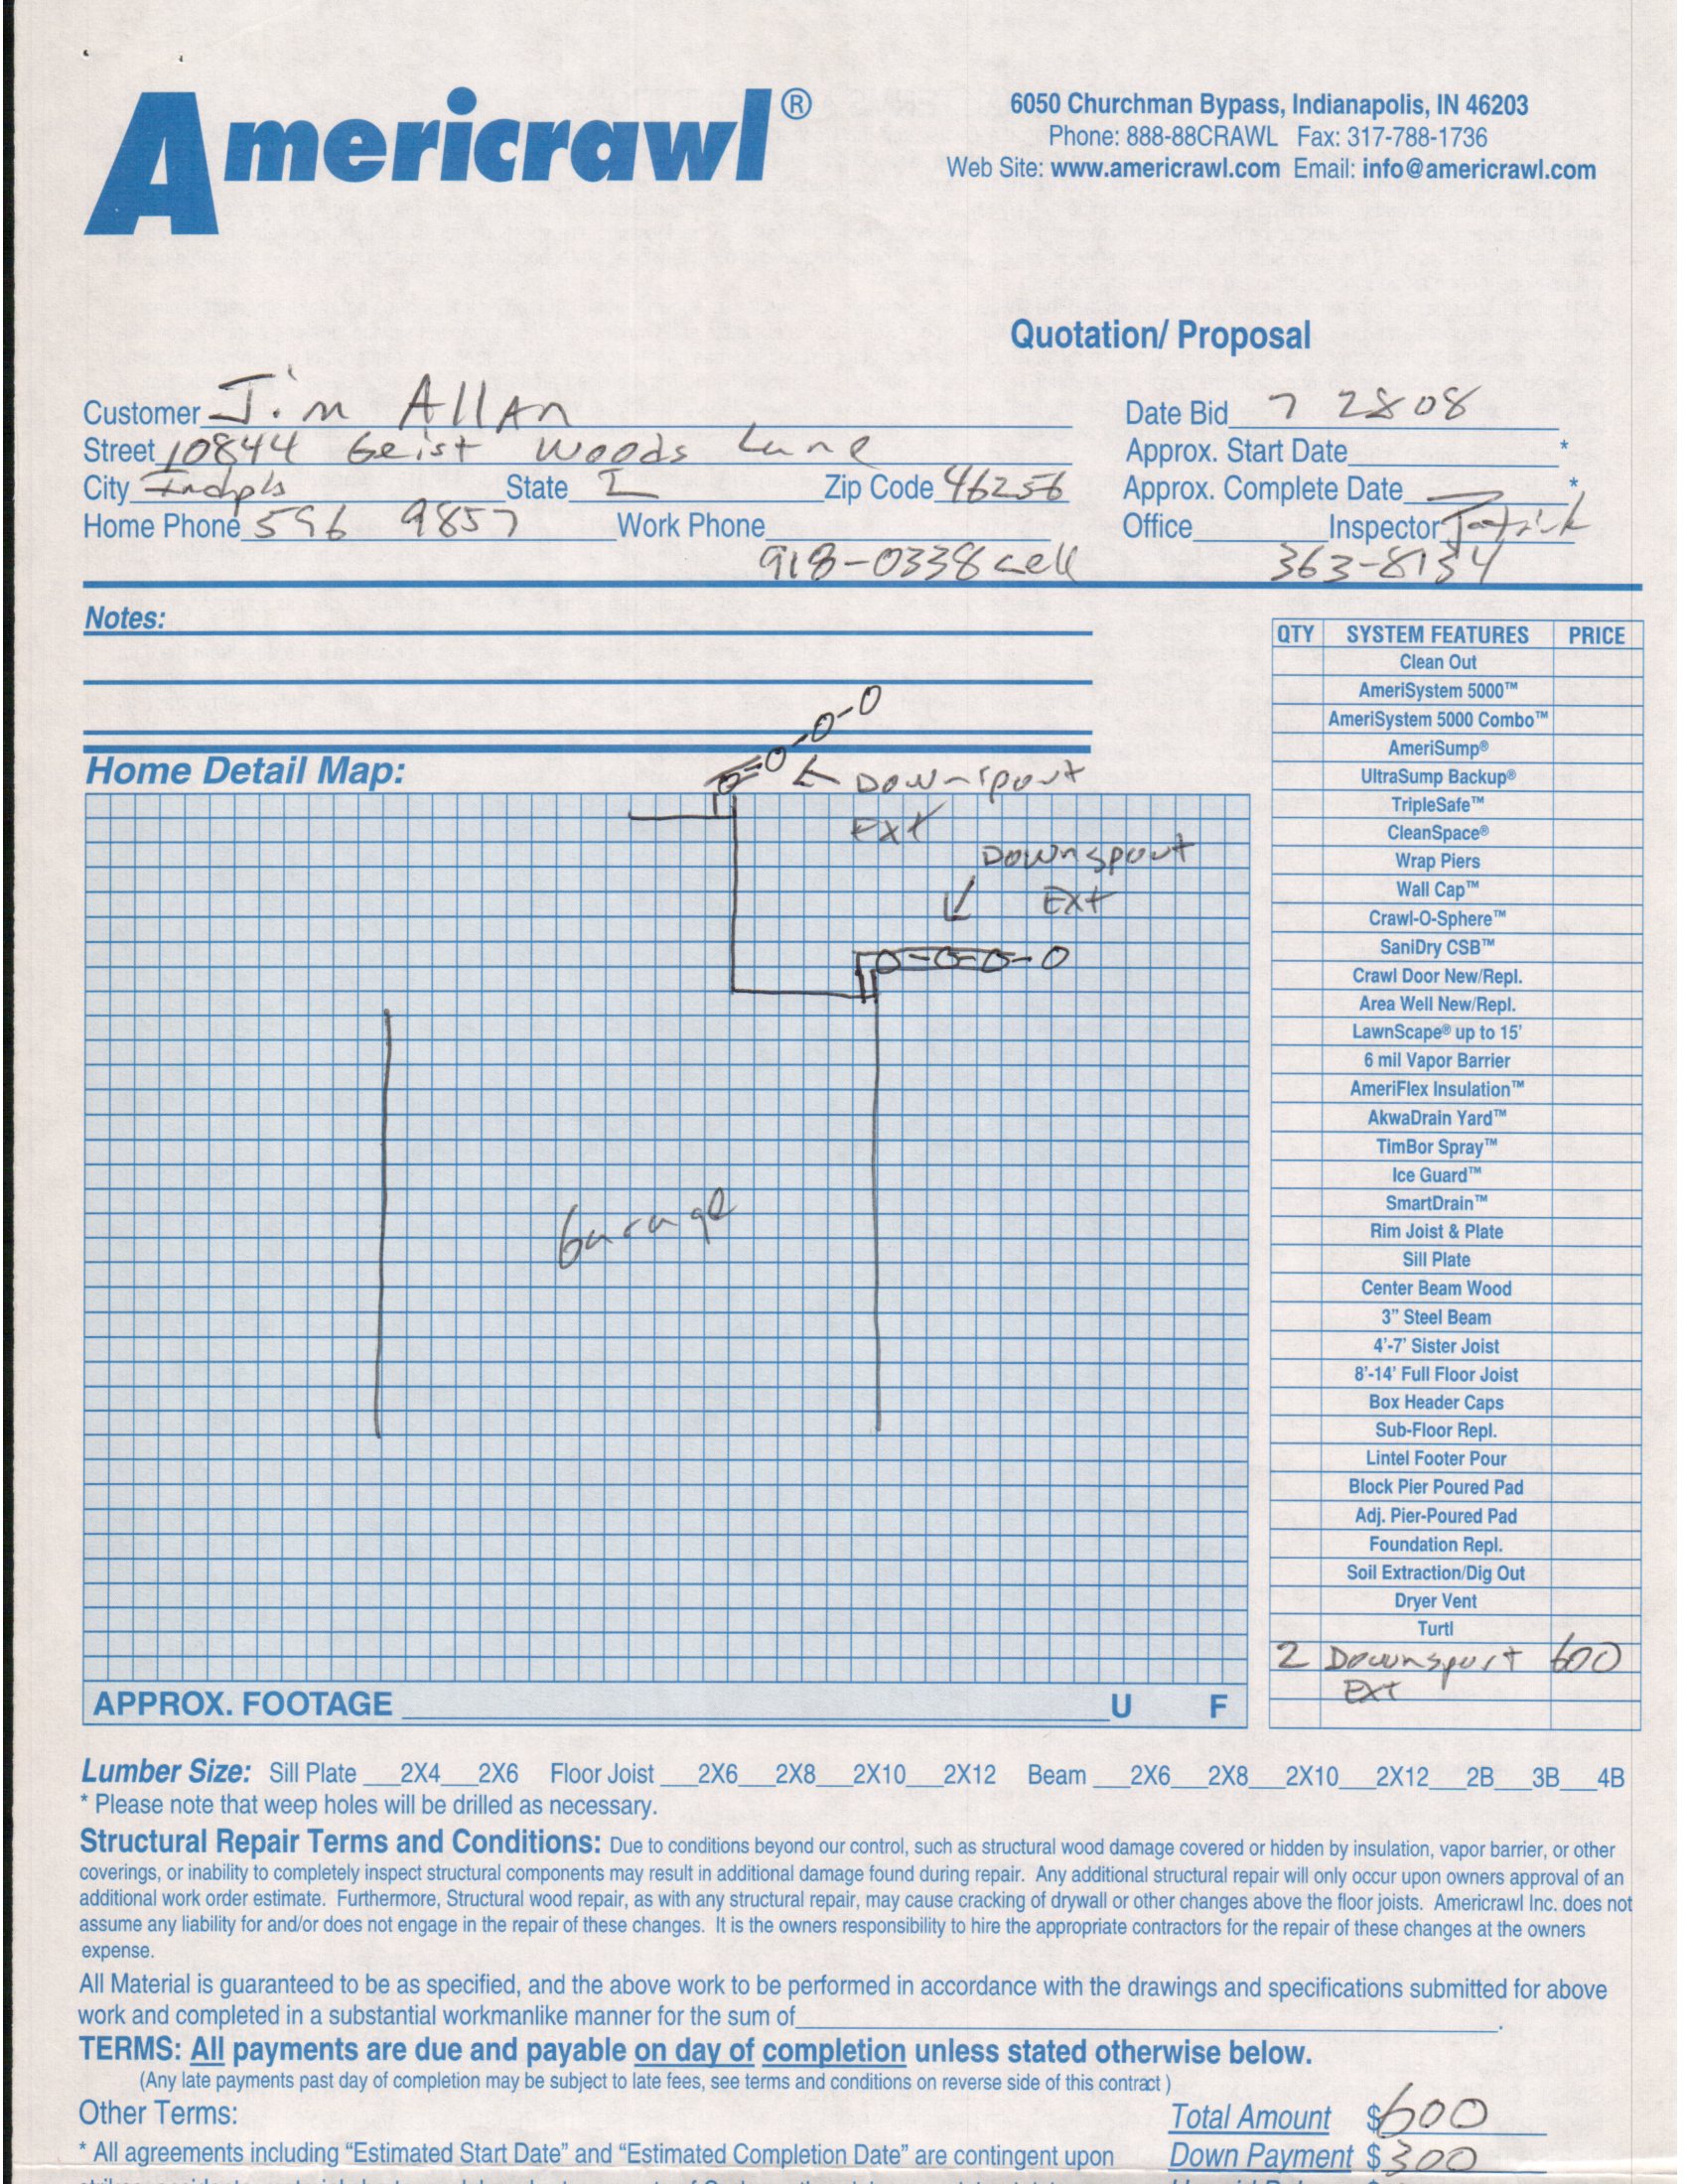 Americrawl®
6050 Churchman Bypass, Indianapolis, IN 46203
Phone: 888-88CRAWL Fax: 317-788-1736
Web Site: www.americrawl.com Email: info@americrawl.com
Quotation/ Proposal
Customer Jim Allan
Date Bid 7 28 08
Street 10844 Geist Woods Lane
Approx. Start Date *
City Indpls State I Zip Code 46256
Approx. Complete Date *
Home Phone 596 9857 Work Phone
Office Inspector
918-0338 cell
363-8134
Notes:
QTY SYSTEM FEATURES PRICE
Clean Out
AmeriSystem 5000™
AmeriSystem 5000 Combo™
AmeriSump®
UltraSump Backup®
TripleSafe™
CleanSpace®
Wrap Piers
Wall Cap™
Crawl-O-Sphere™
SaniDry CSB™
Crawl Door New/Repl.
Area Well New/Repl.
LawnScape® up to 15'
6 mil Vapor Barrier
AmeriFlex Insulation™
AkwaDrain Yard™
TimBor Spray™
Ice Guard™
SmartDrain™
Rim Joist & Plate
Sill Plate
Center Beam Wood
3" Steel Beam
4'-7' Sister Joist
8'-14' Full Floor Joist
Box Header Caps
Sub-Floor Repl.
Lintel Footer Pour
Block Pier Poured Pad
Adj. Pier-Poured Pad
Foundation Repl.
Soil Extraction/Dig Out
Dryer Vent
Turtl
2 Downspout 600
EXT
Home Detail Map:
Downspout
Ext
Downspout
Ext
Garage
APPROX. FOOTAGE U F
Lumber Size: Sill Plate ___2X4___2X6 Floor Joist ___2X6___2X8___2X10___2X12 Beam ___2X6___2X8___2X10___2X12___2B___3B___4B
* Please note that weep holes will be drilled as necessary.
Structural Repair Terms and Conditions: Due to conditions beyond our control, such as structural wood damage covered or hidden by insulation, vapor barrier, or other
coverings, or inability to completely inspect structural components may result in additional damage found during repair. Any additional structural repair will only occur upon owners approval of an
additional work order estimate. Furthermore, Structural wood repair, as with any structural repair, may cause cracking of drywall or other changes above the floor joists. Americrawl Inc. does not
assume any liability for and/or does not engage in the repair of these changes. It is the owners responsibility to hire the appropriate contractors for the repair of these changes at the owners
expense.
All Material is guaranteed to be as specified, and the above work to be performed in accordance with the drawings and specifications submitted for above
work and completed in a substantial workmanlike manner for the sum of
TERMS: All payments are due and payable on day of completion unless stated otherwise below.
(Any late payments past day of completion may be subject to late fees, see terms and conditions on reverse side of this contract )
Other Terms:
Total Amount $600
* All agreements including “Estimated Start Date” and “Estimated Completion Date” are contingent upon
Down Payment $300